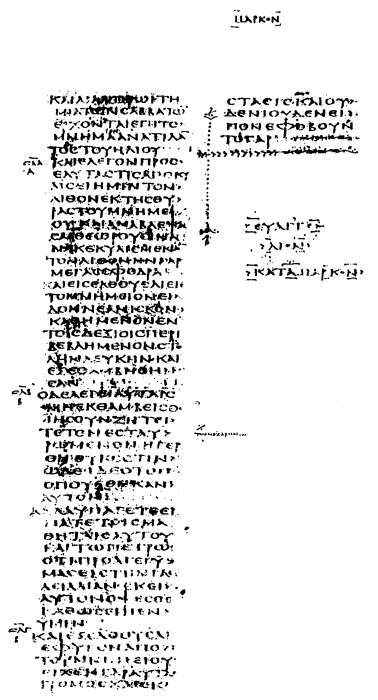 ΜΑΡΚΟΝ
ΚΑΙ ΠΡΩΙΤΗ
ΜΙΑΤΩΝCΑΒΒΑΤΩ
ΕΡΧΟΝΤΑΙΕΠΙΤΟ
ΜΝΗΜΑΑΝΑΤΙΛΑ
ΤΟCΤΟΥΗΛΙΟΥ
ΚΑΙΕΛΕΓΟΝΠΡΟC
ΕΑΥΤΑCΤΙCΑΠΟΚΥ
ΛΙCΕΙΗΜΙΝΤΟΝ
ΛΙΘΟΝΕΚΤΗCΘΥ
ΡΑCΤΟΥΜΝΗΜΕΙ
ΟΥΚΑΙΑΝΑΒΛΕΨΑ
CΑΙΘΕΩΡΟΥCΙΝΑ
ΝΑΚΕΚΥΛΙCΜΕΝΟ
ΤΟΝΛΙΘΟΝΗΝΓΑΡ
ΜΕΓΑCCΦΟΔΡΑ
ΚΑΙΕΙCΕΛΘΟΥCΑΙΕΙC
ΤΟΜΝΗΜΙΟΝΕΙ
ΔΟΝΝΕΑΝΙCΚΟΝ
ΚΑΘΗΜΕΝΟΝΕΝ
ΤΟΙCΔΕΞΙΟΙCΠΕΡΙ
ΒΕΒΛΗΜΕΝΟΝCΤΟ
ΛΗΝΛΕΥΚΗΝΚΑΙ
ΕΞΕΘΑΜΒΗΘΗ
CΑΝ
ΟΔΕΛΕΓΕΙΑΥΤΑΙC
ΜΗΕΚΘΑΜΒΕΙCΘΕ
ΙΗCΟΥΝΖΗΤΕΙ
ΤΕΤΟΝΕCΤΑΥ
ΡΩΜΕΝΟΝΗΓΕΡ
ΘΗΟΥΚΕCΤΙΝ
ΩΔΕΙΔΕΟΤΟΠΟC
ΟΠΟΥΕΘΗΚΑΝ
ΑΥΤΟΝ
ΑΛΛΑΥΠΑΓΕΤΕΕΙ
ΠΑΤΕΤΟΙCΜΑ
ΘΗΤΑΙCΑΥΤΟΥ
ΚΑΙΤΩΠΕΤΡΩ
ΟΤΙΠΡΟΑΓΕΙΥ
ΜΑCΕΙCΤΗΝΓΑ
ΛΙΛΑΙΑΝΕΚΕΙ
ΑΥΤΟΝΟΨΕCΘΕ
ΚΑΘΩCΕΙΠΕΝ
ΥΜΙΝ
ΚΑΙΕΞΕΛΘΟΥCΑΙ
ΕΦΥΓΟΝΑΠΟ
ΤΟΥΜΝΗΜΕΙΟΥ
ΕΙΧΕΝΓΑΡΑΥΤΑC
ΤΡΟΜΟCΚΑΙΕΚ
CΤΑCΙCΚΑΙΟΥ
ΔΕΝΙΟΥΔΕΝΕΙ
ΠΟΝΕΦΟΒΟΥΝ
ΤΟΓΑΡ
ΕΥΑΓΓΕ
ΛΙΟΝ
ΚΑΤΑΜΑΡΚΟΝ